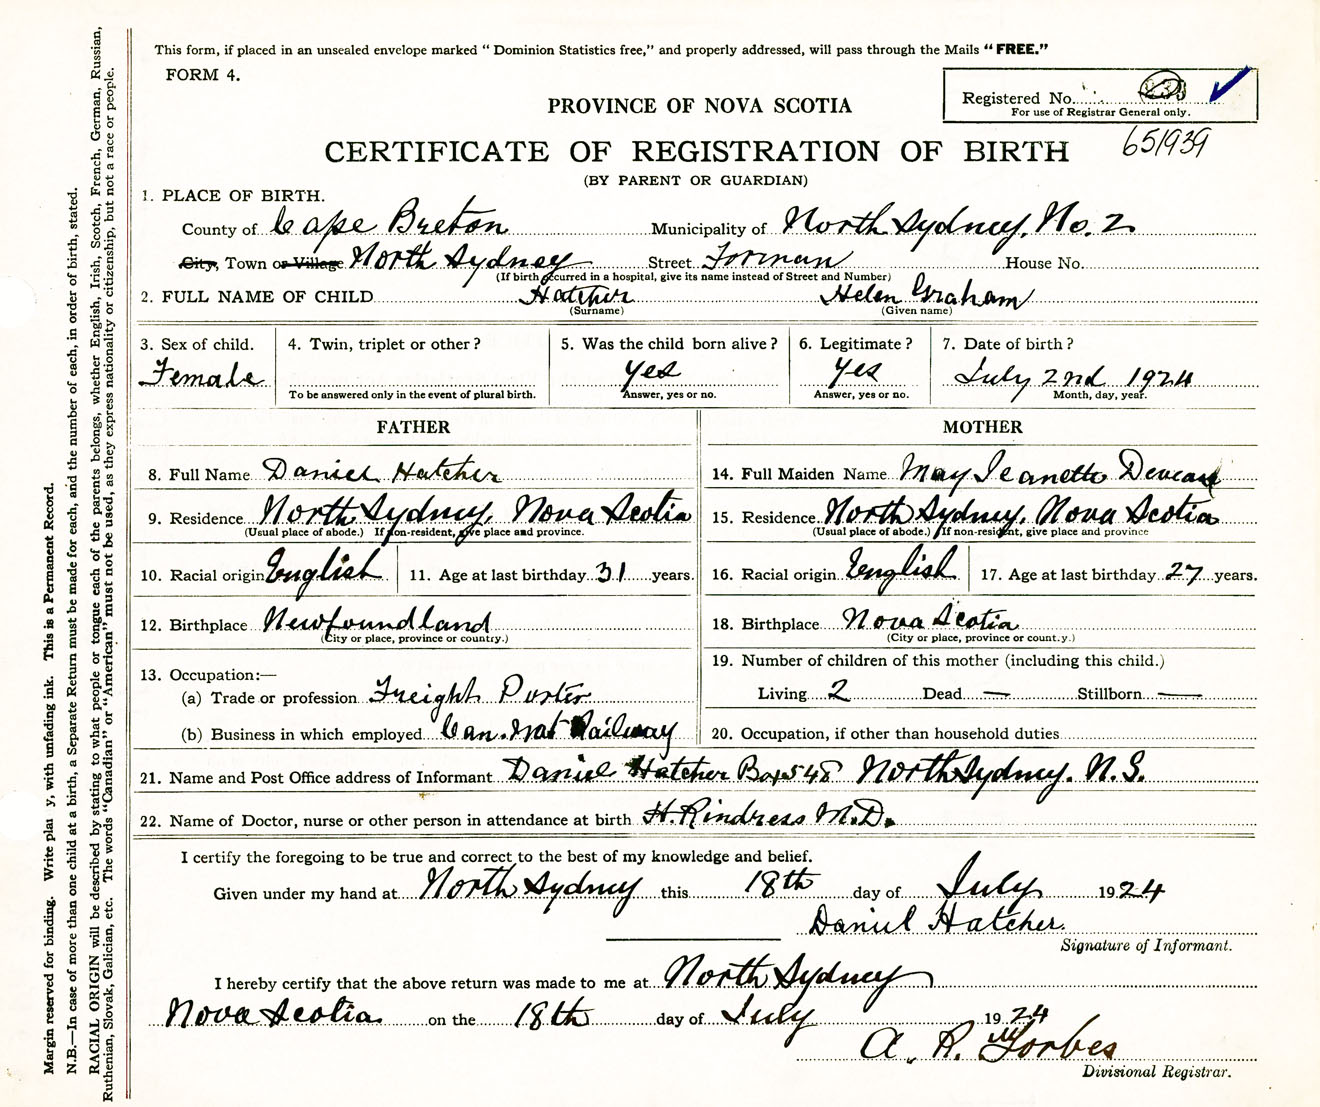 This form, if placed in an unsealed envelope marked “ Dominion Statistics free,” and properly addressed, will pass through the Mails “ FREE.”
FORM 4.
Registered No.
For use of Registrar General only.
651939
PROVINCE OF NOVA SCOTIA
CERTIFICATE OF REGISTRATION OF BIRTH
(BY PARENT OR GUARDIAN)
1. PLACE OF BIRTH.
County of Cape Breton Municipality of North Sydney, No. 2
City, Town or Village North Sydney Street Forman House No.
(If birth occurred in a hospital, give its name instead of Street and Number)
2. FULL NAME OF CHILD Hatcher Helen Graham
(Surname) (Given name)
3. Sex of child. 4. Twin, triplet or other? 5. Was the child born alive? 6. Legitimate? 7. Date of birth?
Female yes Yes July 2nd 1924
To be answered only in the event of plural birth. Answer, yes or no. Answer, yes or no. Month, day, year.
FATHER
8. Full Name Daniel Hatcher
9. Residence North Sydney, Nova Scotia
(Usual place of abode.) If non-resident, give place and province.
10. Racial origin English 11. Age at last birthday 31 years.
12. Birthplace Newfoundland
(City or place, province or country.)
13. Occupation:—
(a) Trade or profession Freight Porter
(b) Business in which employed Can. Nat Railway
MOTHER
14. Full Maiden Name May Jeanette
15. Residence North Sydney, Nova Scotia
(Usual place of abode.) If non-resident, give place and province
16. Racial origin English 17. Age at last birthday 27 years.
18. Birthplace Nova Scotia
(City or place, province or count.y.)
19. Number of children of this mother (including this child.)
Living 2 Dead — Stillborn —
20. Occupation, if other than household duties
21. Name and Post Office address of Informant Daniel Hatcher Box 548 North Sydney. N.S.
22. Name of Doctor, nurse or other person in attendance at birth H. Rindress M.D.
I certify the foregoing to be true and correct to the best of my knowledge and belief.
Given under my hand at North Sydney this 18th day of July 1924
Daniel Hatcher.
Signature of Informant.
I hereby certify that the above return was made to me at North Sydney
Nova Scotia on the 18th day of July 1924
A. R. Forbes
Divisional Registrar.
Margin reserved for binding. Write plai y, with unfading ink. This is a Permanent Record.
N.B.—In case of more than one child at a birth, a Separate Return must be made for each, and the number of each, in order of birth, stated.
RACIAL ORIGIN will be described by stating to what people or tongue each of the parents belongs, whether English, Irish, Scotch, French, German, Russian,
Ruthenian, Slovak, Galician, etc. The words “Canadian” or “American” must not be used, as they express nationality or citizenship, but not a race or people.